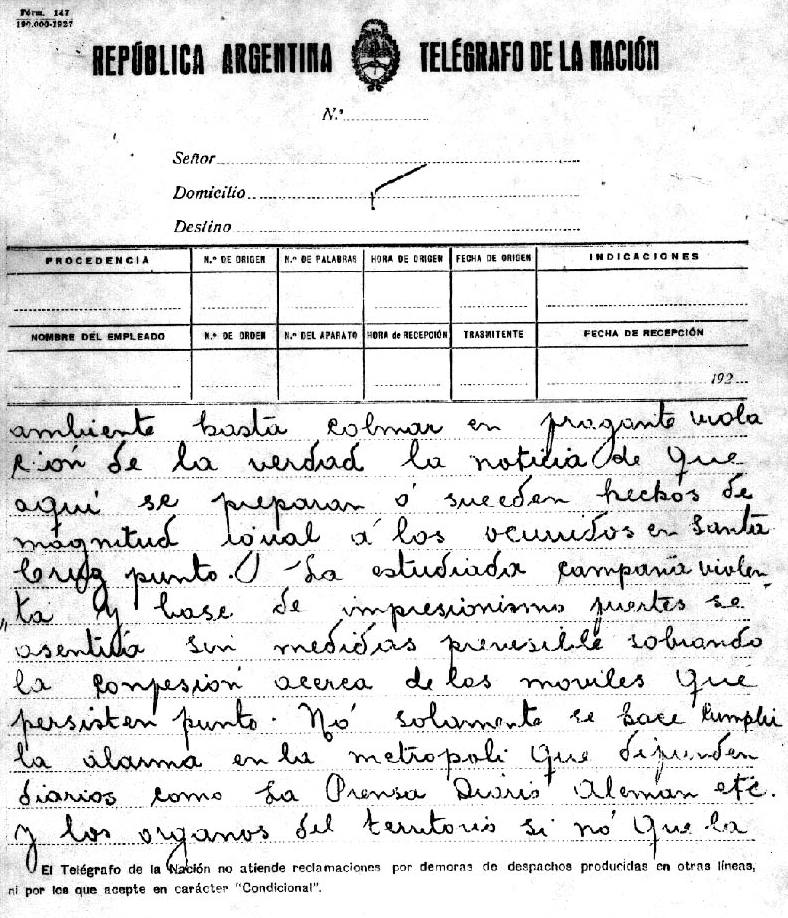 Fórm. 147
190.000-1927
REPÚBLICA ARGENTINA TELÉGRAFO DE LA NACIÓN
N.º
Señor
Domicilio
Destino
PROCEDENCIA N.º DE ORIGEN N.º DE PALABRAS HORA DE ORIGEN FECHA DE ORIGEN INDICACIONES
NOMBRE DEL EMPLEADO N.º DE ORDEN N.º DEL APARATO HORA de RECEPCIÓN TRASMITENTE FECHA DE RECEPCIÓN
192
ambiente hasta colmar en fragante viola
ción de la verdad la noticia de que
aquí se preparan ó suceden hechos de
magnitud igual a los ocurridos en Santa
Cruz punto. La estudiada campaña violen
ta y base de impresionismo fuertes se
sin medidas previsible sobrando
la confesión acerca de los moviles que
persisten punto. No solamente se hace cumplir
la alarma en la metropoli que difunden
diarios como La Prensa Diario Aleman etc.
y los organos del territorio si nó que la
El Telégrafo de la Nación no atiende reclamaciones por demoras de despachos producidas en otras líneas,
ni por los que acepte en carácter "Condicional".